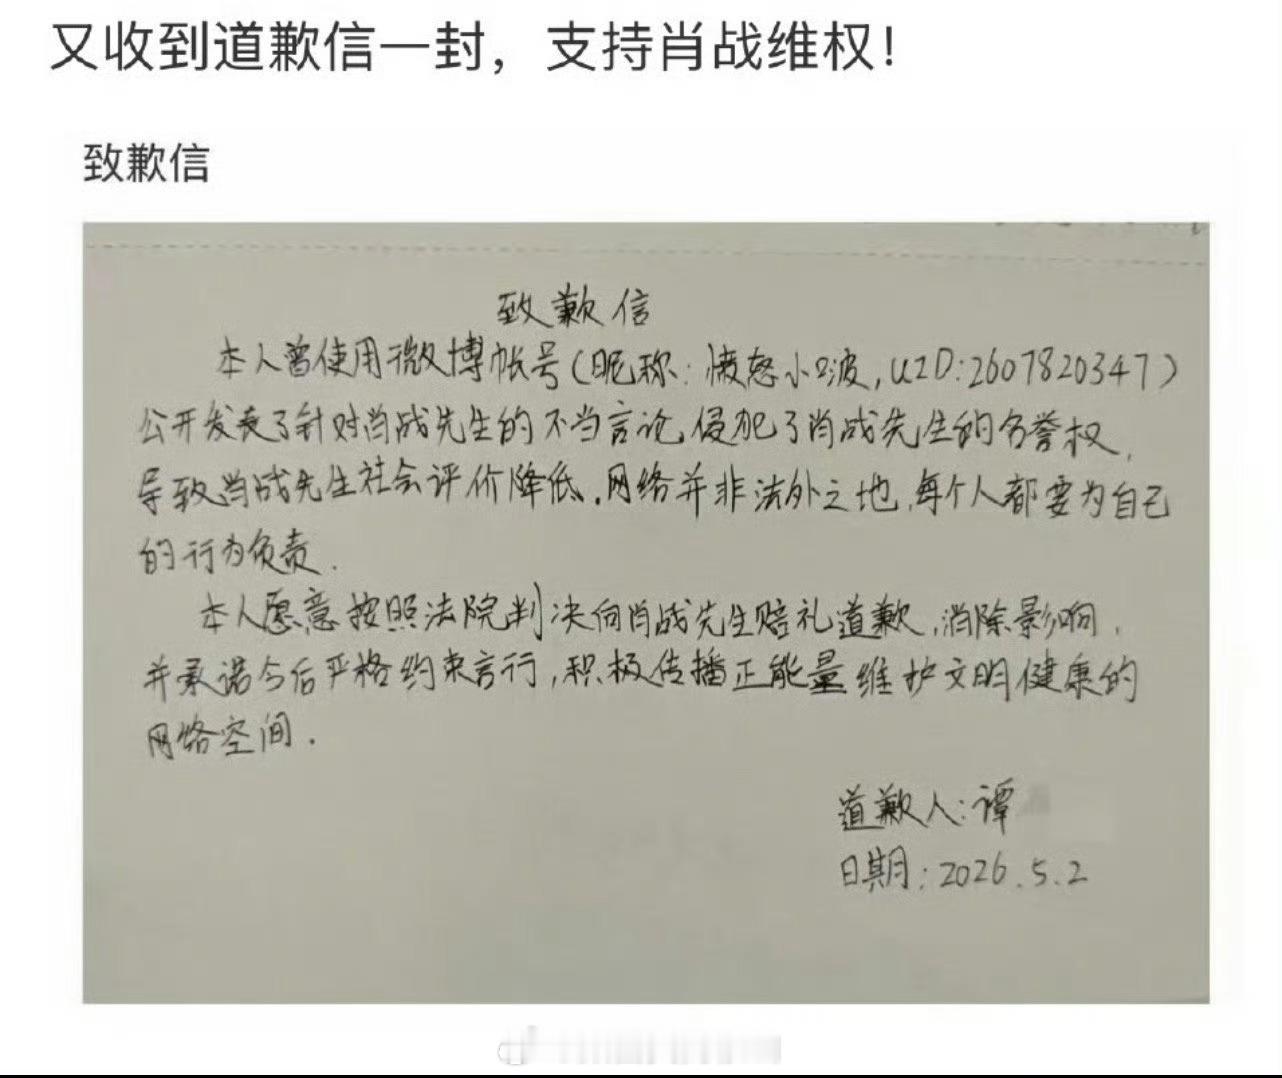 又收到道歉信一封，支持肖战维权！
致歉信
致歉信
本人曾使用微博帐号(昵称：愤怒小波，UID:2607820347)
公开发表了针对肖战先生的不当言论，侵犯了肖战先生的名誉权，
导致肖战先生社会评价降低。网络并非法外之地，每个人都要为自己
的行为负责。
本人愿意按照法院判决向肖战先生赔礼道歉，消除影响，
并承诺今后严格约束言行，积极传播正能量维护文明健康的
网络空间。
道歉人：谭
日期：2026.5.2